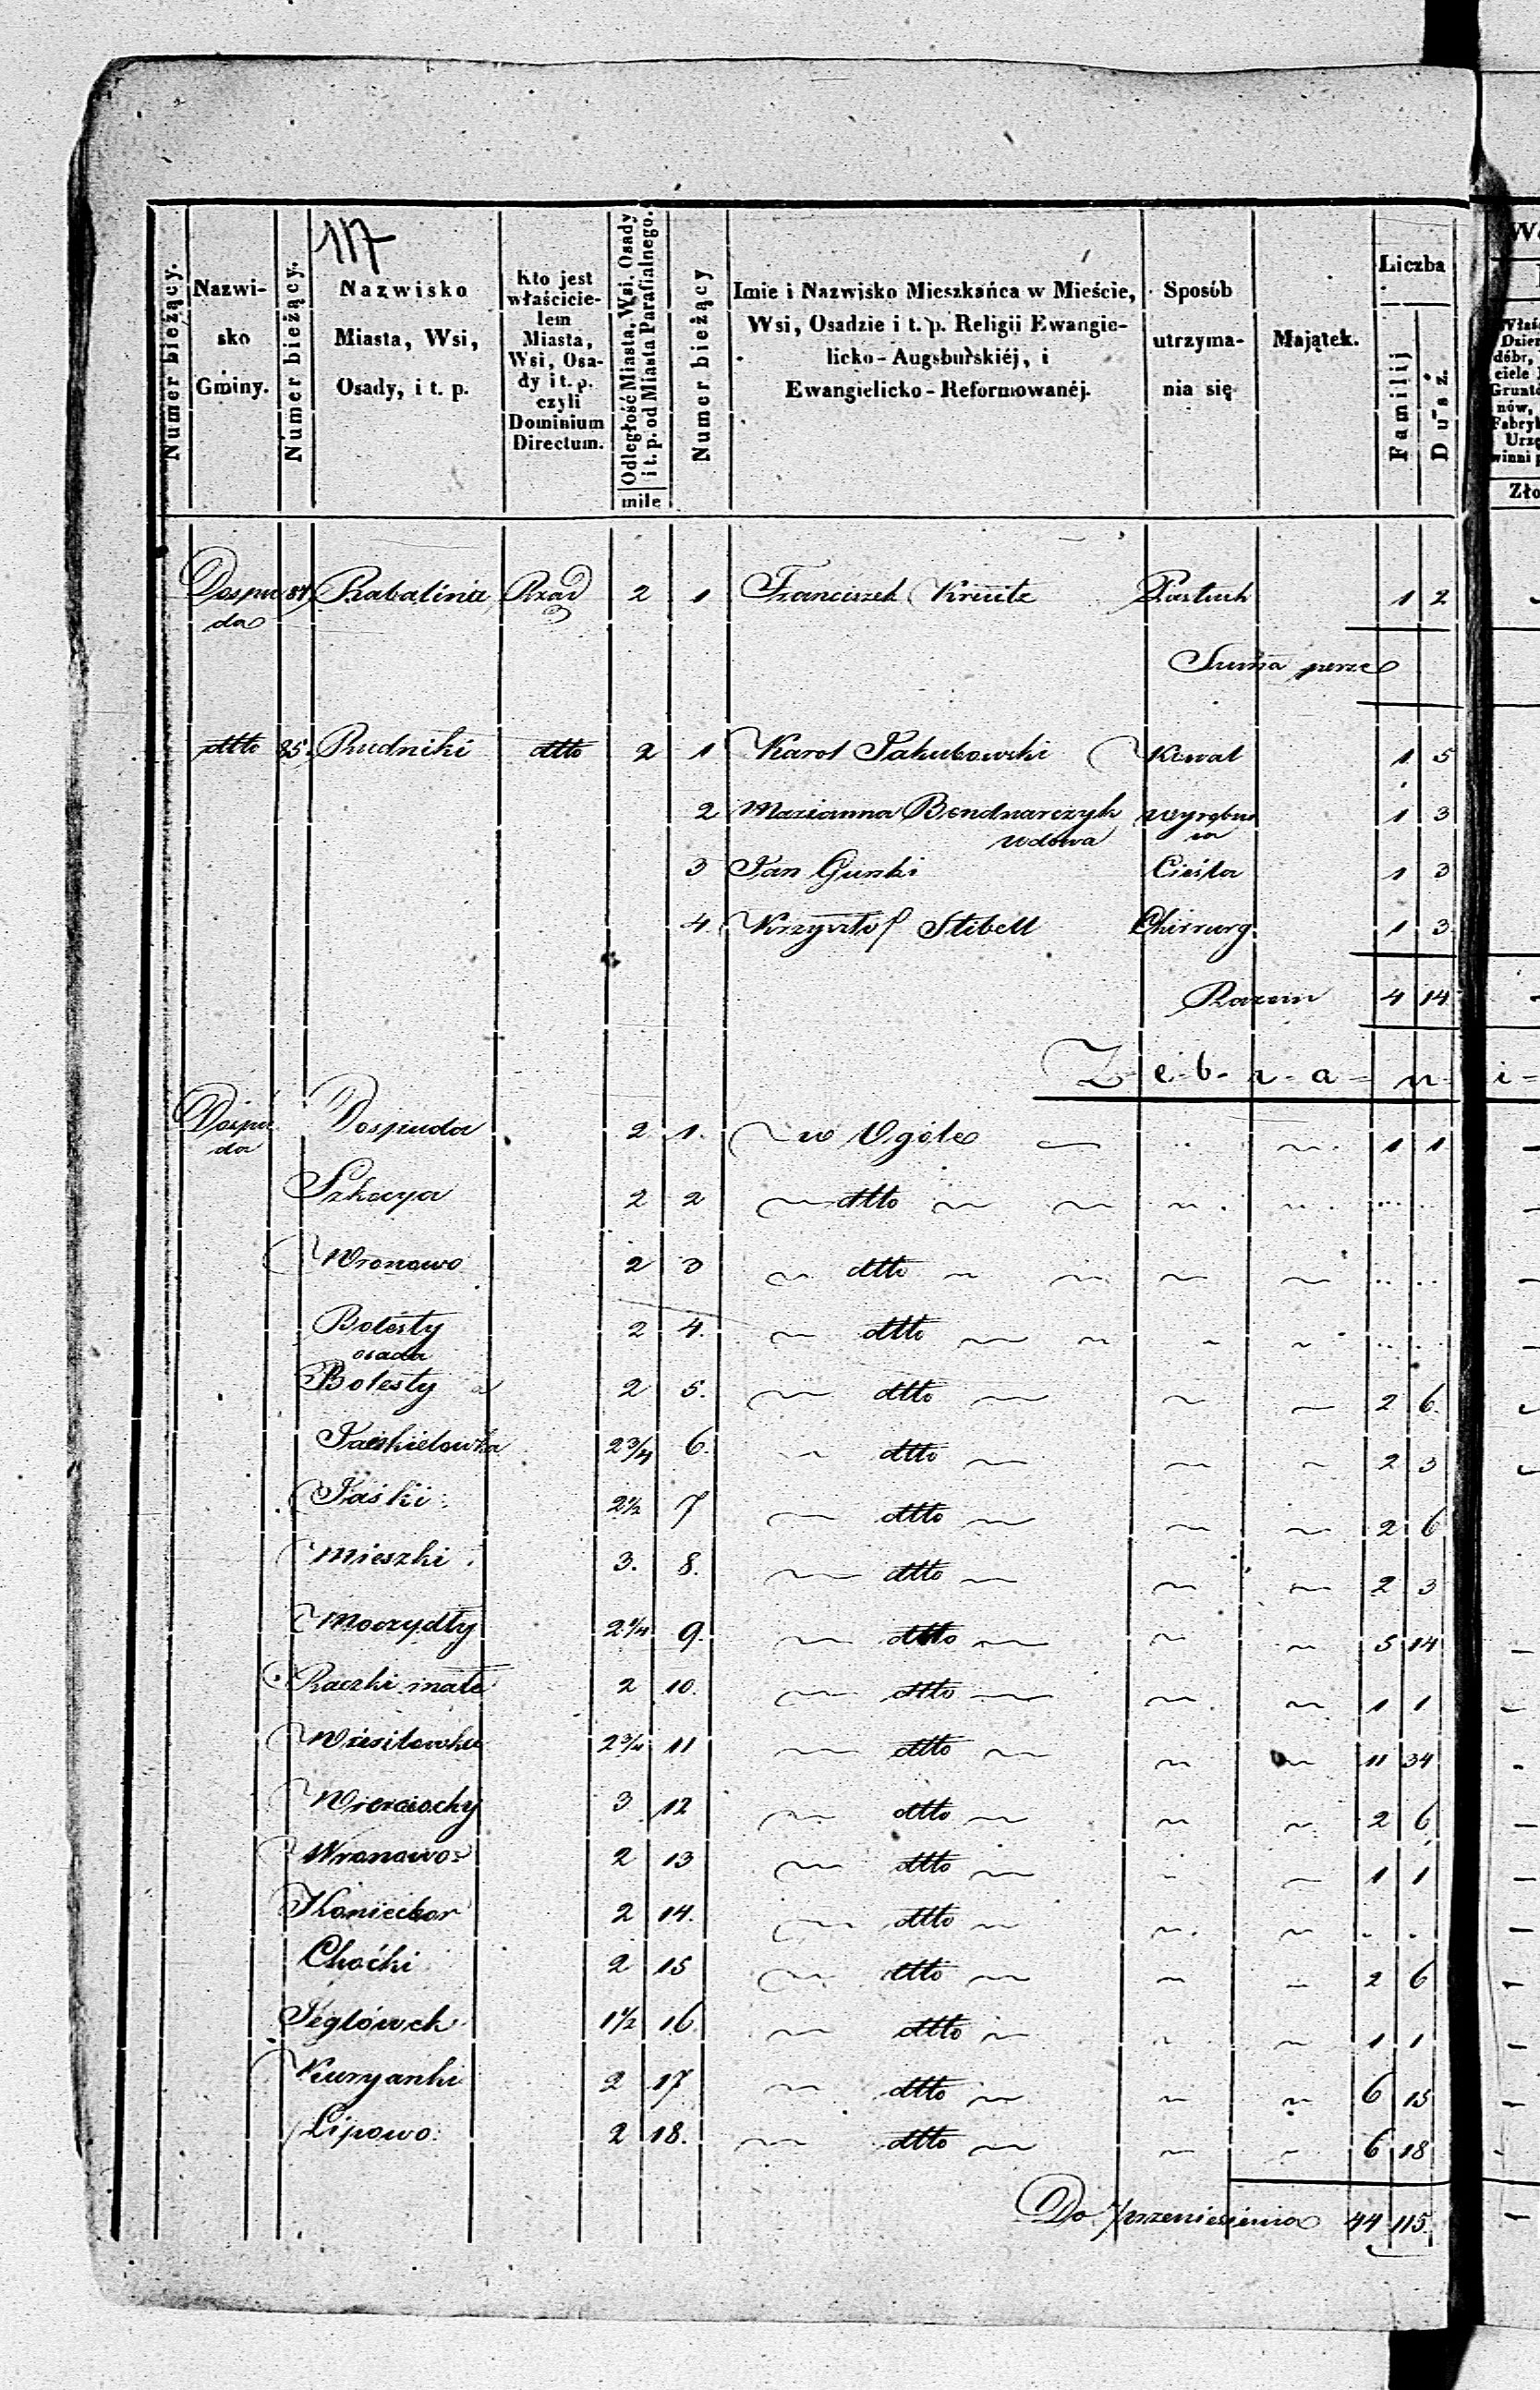 117
Numer bieżący.
Nazwi-
sko
Gminy.
Numer bieżący.
Nazwisko
Miasta, Wsi,
Osady, i t. p.
Kto jest
właścicie-
lem
Miasta,
Wsi, Osa-
dy i t. p.
czyli
Dominium
Directum.
Odległość Miasta, Wsi, Osady
i t. p. od Miasta Parafialnego.
mile
Numer bieżący
Imie i Nazwisko Mieszkańca w Mieście,
Wsi, Osadzie i t. p. Religii Ewangie-
licko-Augsburskiéj, i
Ewangielicko-Reformowanéj.
Sposób
utrzyma-
nia się
Majątek.
Liczba
Familij
Dusż.
Zło
Dospu 84 Rabalina Rząd 2 1 Franciszek Kreutz Pastuch 1 2
da
Suma perse
dtto 85. Rudniki dtto 2 1 Karol Jakubowski Kowal 1 5
2 Marianna Bendnarczyk wyrobni 1 3
wdowa ca
3 Jan Gunki Cieśla 1 3
4 Krzysztof Stibell Chirurg. 1 3
Razem 4 14
Z-e-b-r-a-n-i-
Dospu Dospuda 2 1. w Ogóle 1 1
da
Szkocya 2 2 dtto
Wronowo 2 3 dtto
Bolesty 2 4. dtto
osada
Bolesty 2 5. dtto 2 6
Jaśkielowka 2¾ 6. dtto 2 3
Jaśki 2½ 7 dtto 2 6
Mieszki 3. 8. dtto 2 3
Moczydły 2¼ 9. dtto 5 14
Raczki małe 2 10. dtto 1 1
Wiesiłowka 2¾ 11 dtto 11 34
Wierciochy 3 12 dtto 2 6
Wronowo 2 13 dtto 1 1
Koniecbor 2 14. dtto
Choćki 2 15 dtto 2 6
Jeglówek 1½ 16 dtto 1 1
Kuryanki 2 17 dtto 6 15
Lipowo 2 18. dtto 6 18
Do przeniesienia 44 115